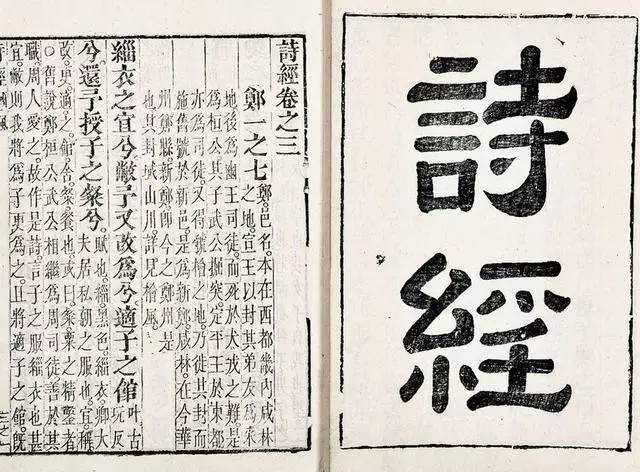 詩經
詩經卷之三
鄭一之七 鄭。邑名。本在西都畿內咸林
之地。宣王以封其弟友為采
地後為幽王司徒。而死於犬戎之難。是
為桓公。其子武公掘突。定平王於東都
亦為司徒。又得虢檜之地。乃徙其封。而
施舊號於新邑。是為新鄭。咸林在今華
州鄭縣。新鄭即今之鄭州是
也。其封域山川。詳見檜風。
緇衣之宜兮。敝予又改為兮。適子之館 叶古
玩反
兮。還予授子之粲兮。 賦也。緇。黑色。緇衣。卿大
夫居私朝之服也。宜。稱
改。更。適。之。館。舍。粲。餐也。或曰粲。粟之精鑿者
○舊說鄭桓公武公。相繼為周司徒。善於其
職。周人愛之。故作是詩。言子之服緇衣也甚
宜。敝則我將為子更為之。且將適子之館。既
詩經 國風